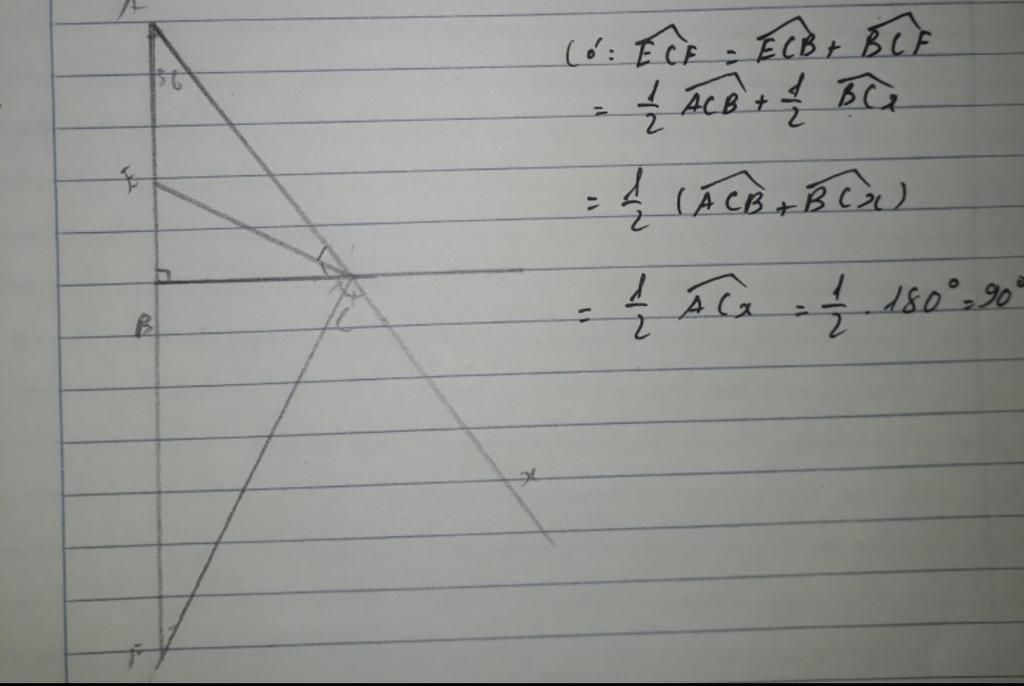 A
36
E
B
C
x
F
Có: \widehat{ECF} = \widehat{ECB} + \widehat{BCF}
= \frac{1}{2} \widehat{ACB} + \frac{1}{2} \widehat{BCx}
= \frac{1}{2} (\widehat{ACB} + \widehat{BCx})
= \frac{1}{2} \widehat{ACx} = \frac{1}{2} . 180° = 90°